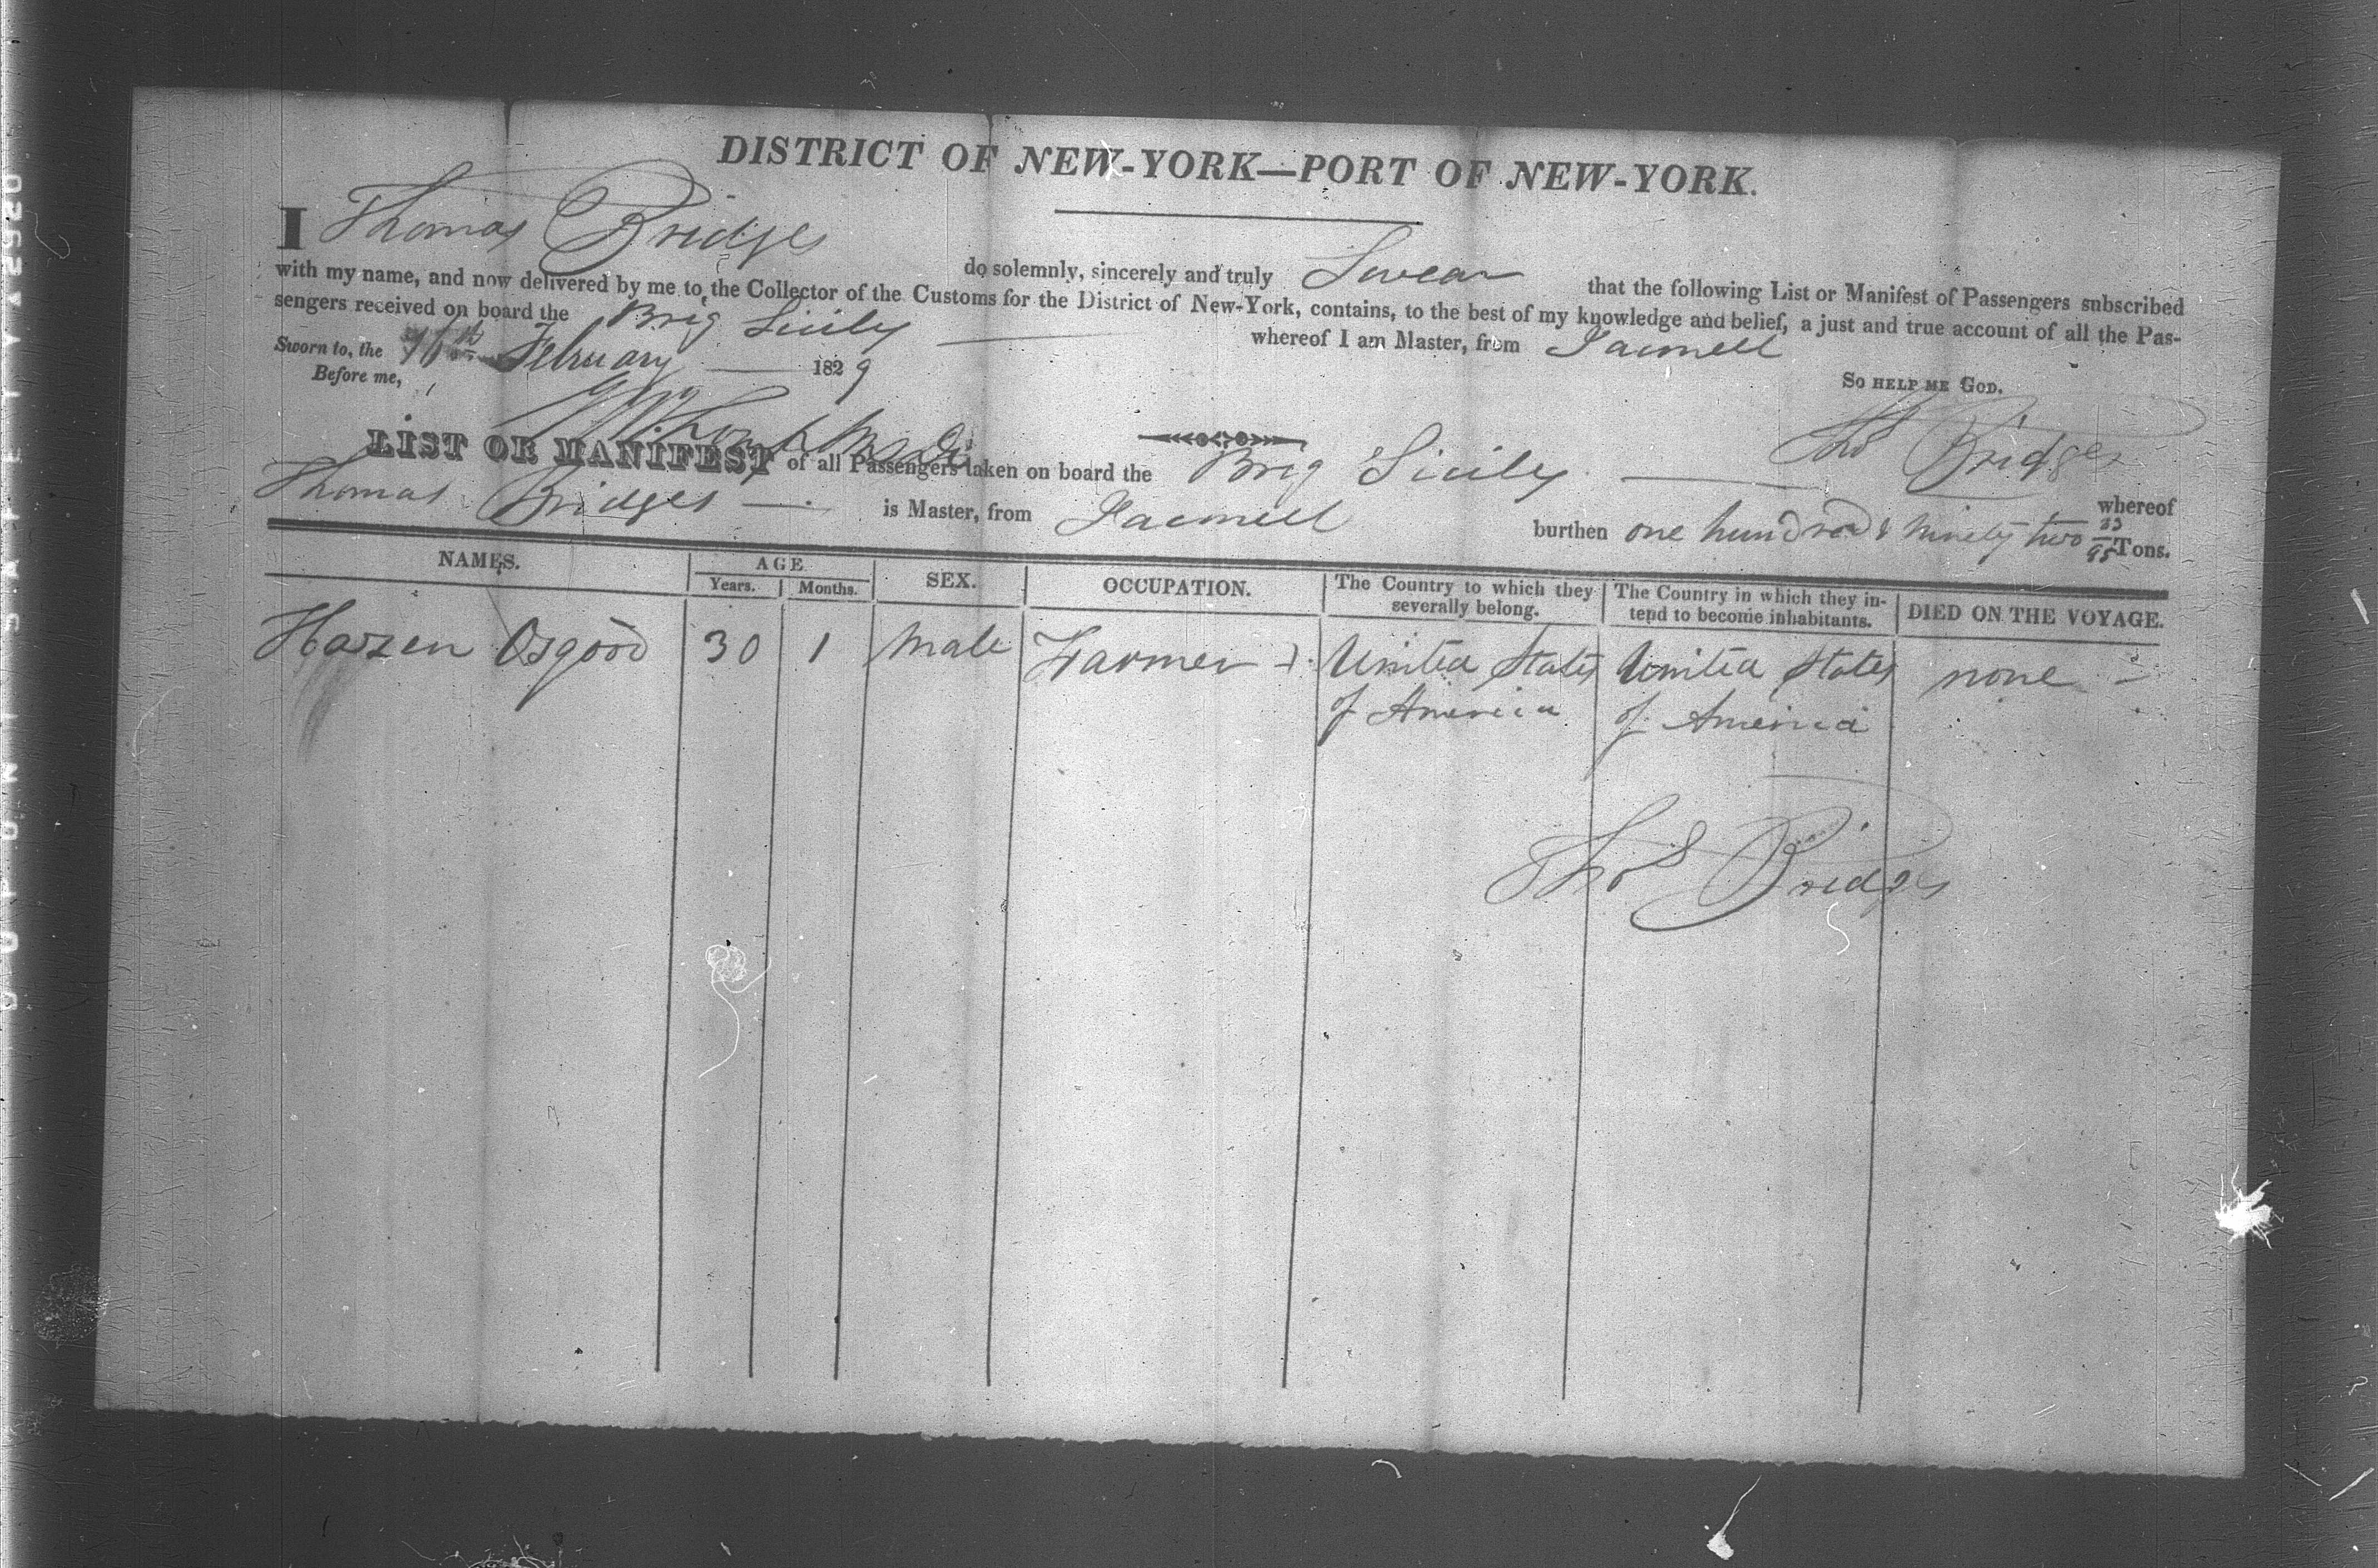 DISTRICT OF NEW-YORK—PORT OF NEW-YORK.
I Thomas Bridges do solemnly, sincerely and truly Swear that the following List or Manifest of Passengers subscribed
with my name, and now delivered by me to the Collector of the Customs for the District of New-York, contains, to the best of my knowledge and belief, a just and true account of all the Pas-
sengers received on board the Brig Sicily whereof I am Master, from Jacmell
Sworn to, the February 1829
So HELP ME GOD.
Before me,
Thos Bridges
LIST OR MANIFEST of all Passengers taken on board the Brig Sicily whereof
Thomas Bridges is Master, from Jacmell burthen one hundred & ninety two 23/95 Tons.
NAMES. AGE SEX. OCCUPATION. The Country to which they severally belong. The Country in which they in-tend to become inhabitants. DIED ON THE VOYAGE.
Years. Months.
Hazen Osgood 30 1 Male Farmer United States United States none
of America of America
Thos Bridges